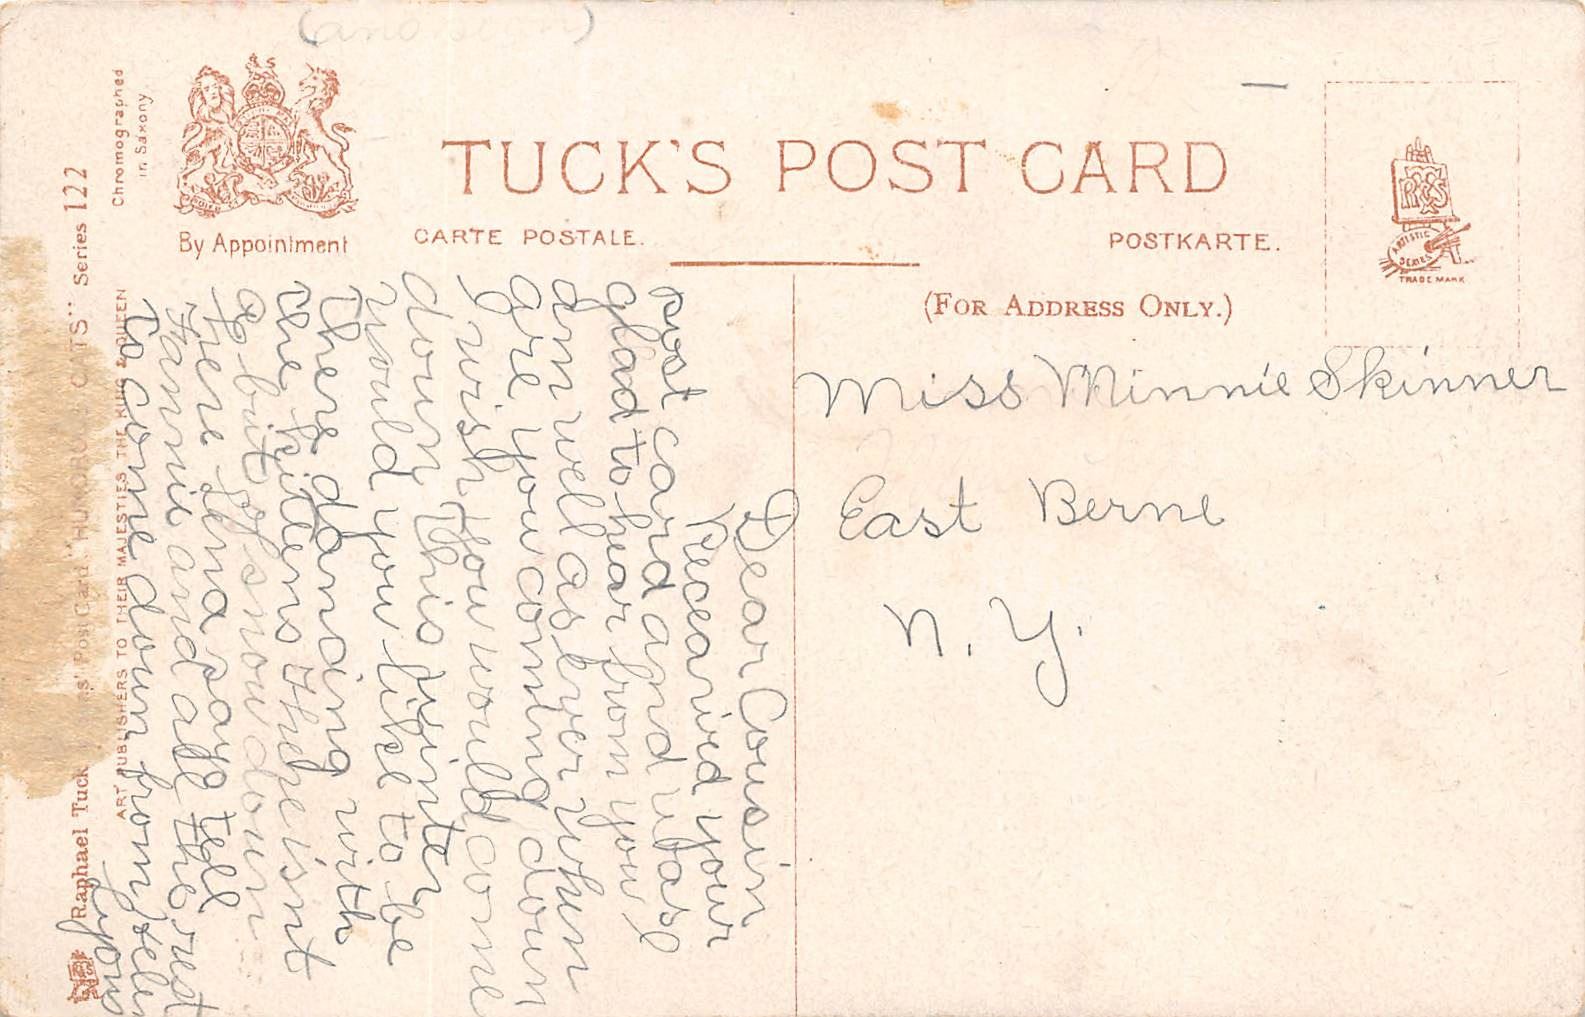 Chromographed
in Saxony.
By Appointment
TUCK'S POST CARD
CARTE POSTALE.
POSTKARTE.
(FOR ADDRESS ONLY.)
ARTISTIC
SERIES
TRADE MARK
Miss Minnie Skinner
East Berne
N. Y.
Dear Cousin
Receaived your
post card and was
glad to hear from you I
am well as ever when
are you coming down
I wish You would come
down this winter
would you like to be
there dancing with
the kittens There isnt
a bit of snow down
here Lena say tell
Fannie and all the rest
to come down from Helen
Lyons
Raphael Tuck Post Card "HUMOROUS CATS" Series 122
ART PUBLISHERS TO THEIR MAJESTIES THE KING & QUEEN